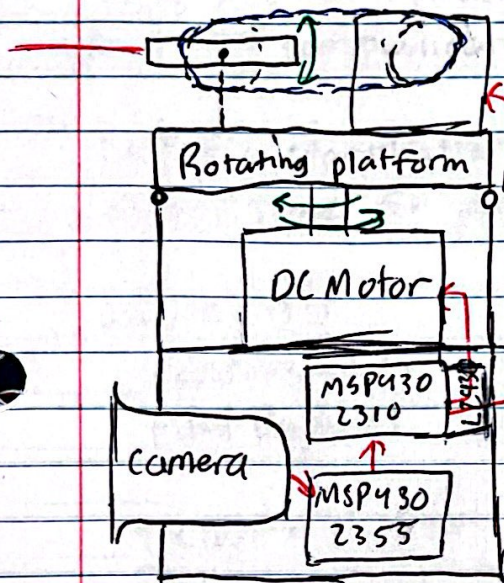 Rotating platform
DC Motor
MSP430
2310
camera
MSP430
2355